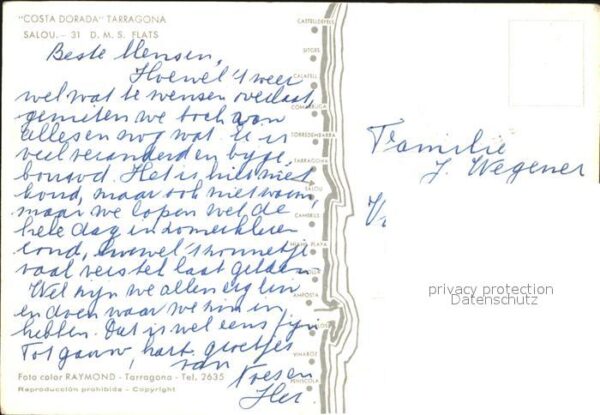 "COSTA DORADA" TARRAGONA
SALOU. - 31 D. M. S. FLATS
Beste Mensen,
Hoewel 't weer
wel wat te wensen overlaat
genieten we toch van
alles en nog wat. Er is
veel veranderd en bijge
bouwd. Het is hier niet
koud, maar ook niet warm
maar we lopen wel de
hele dag in zomerkleren
rond, hoewel 't zonnetje
verstek laat gelden
Wel zijn we allen erg
en doen waar we zin in
hebben. Dat is wel eens fijn
Tot gauw, hart. groetjes
van
Foto color RAYMOND - Tarragona - Tel. 2635
Reproducción prohibida - Copyright
CASTELLDEFELS
SITGES
CALAFELL
COMARRUGA
TORREDEMBARRA
TARRAGONA
SALOU
CAMBRILS
MIAMI PLAYA
AMPOSTA
VINAROZ
PEÑISCOLA
Familie
J. Wegener
privacy protection
Datenschutz